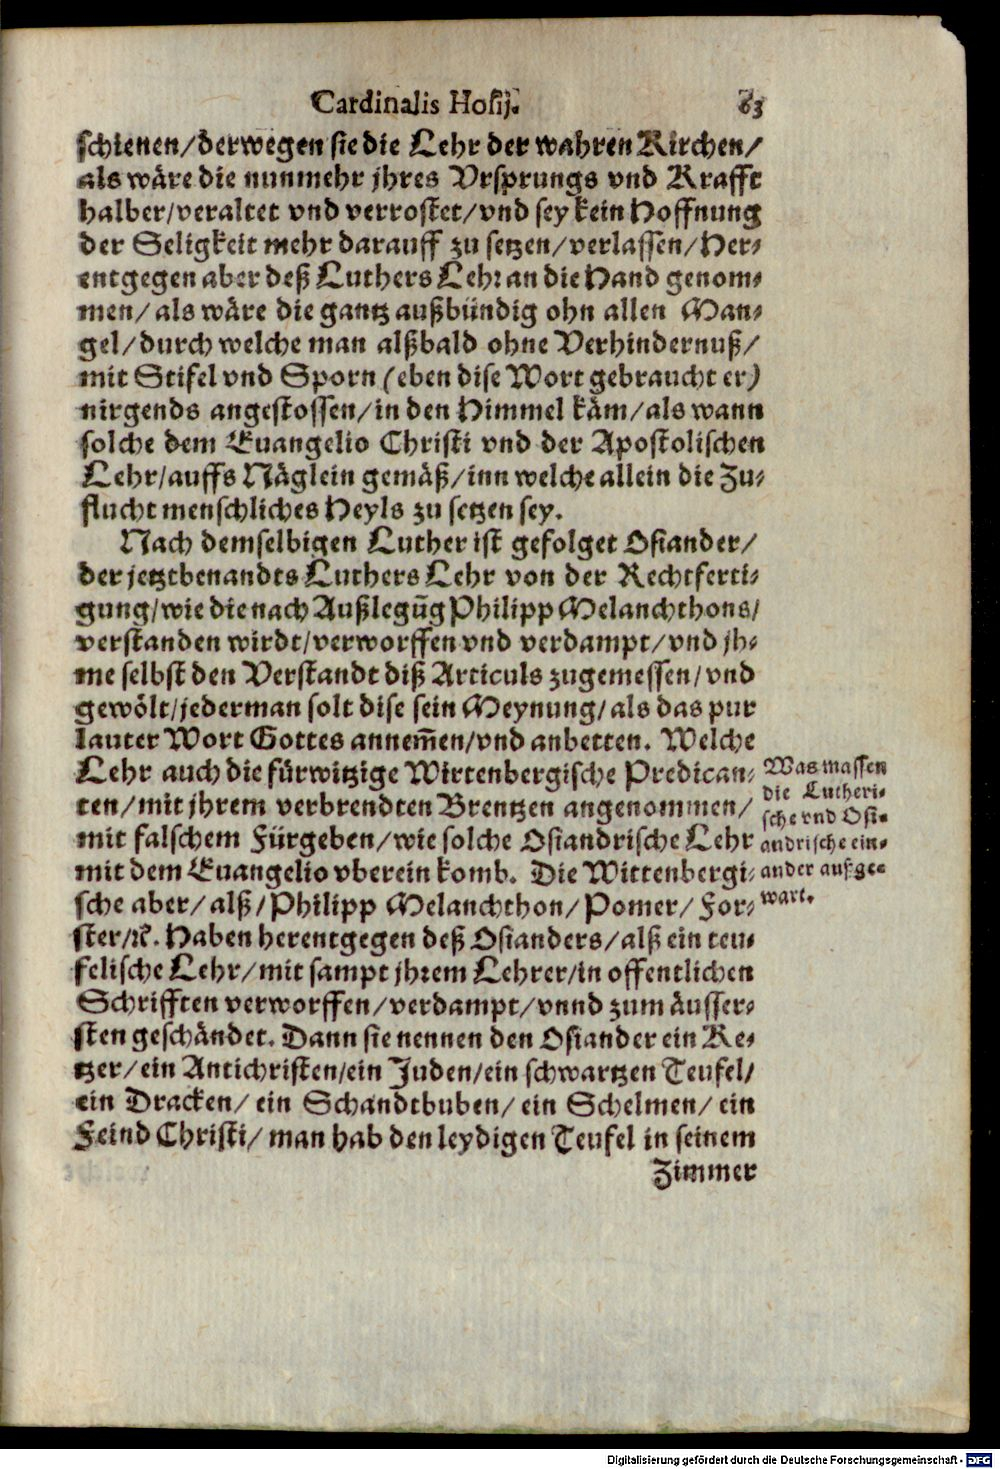 Cardinalis Hosij. 63
schienen/derwegen sie die Lehr der wahren Kirchen/
als wäre die nunmehr jhres Vrsprungs vnd Krafft
halber/veraltet vnd verrostet/vnd sey kein Hoffnung
der Seligkeit mehr darauff zu setzen/verlassen/Her-
entgegen aber deß Luthers Lehr an die Hand genom-
men/ als wäre die gantz außbündig ohn allen Man-
gel/durch welche man alßbald ohne Verhindernuß/
mit Stifel vnd Sporn (eben dise Wort gebraucht er)
nirgends angestossen/in den Himmel käm/als wann
solche dem Euangelio Christi vnd der Apostolischen
Lehr/auffs Näglein gemäß/inn welche allein die Zu-
flucht menschliches Heyls zu setzen sey.
Nach demselbigen Luther ist gefolget Osiander/
der jetztbenandts Luthers Lehr von der Rechtferti-
gung/wie die nach Außlegūg Philipp Melanchthons/
verstanden wirdt/verworffen vnd verdampt/vnd jh-
me selbst den Verstandt diß Articuls zugemessen/vnd
gewölt/jederman solt dise sein Meynung/als das pur
lauter Wort Gottes annem̄en/vnd anbetten. Welche
Lehr auch die fürwitzige Wirtenbergische Predican-
ten/mit jhrem verbrendten Brentzen angenommen/
mit falschem Fürgeben/wie solche Osiandrische Lehr
mit dem Euangelio vberein komb. Die Wittenbergi-
sche aber/alß/Philipp Melanchthon/Pomer/For-
ster/ꝛc. Haben herentgegen deß Osianders/alß ein teu-
felische Lehr/mit sampt jhrem Lehrer/in offentlichen
Schrifften verworffen/verdampt/vnnd zum äusser-
sten geschändet. Dann sie nennen den Osiander ein Ke-
tzer/ein Antichristen/ein Juden/ein schwartzen Teufel/
ein Dracken/ein Schandtbuben/ein Schelmen/ein
Feind Christi/man hab den leydigen Teufel in seinem
Zimmer
Was massen
die Lutheri-
sche vnd Osi-
andrische ein-
ander außge-
wart.
Digitalisierung gefördert durch die Deutsche Forschungsgemeinschaft - DFG